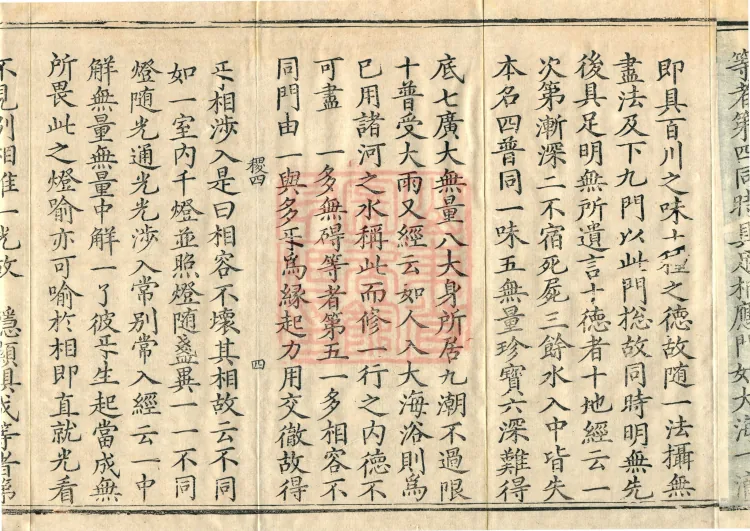 等者第四同時具足相應門如大海一滴
即具百川之味十種之徳故随一法攝無
盡法及下九門以此門捴故同時明無先
後具足明無所遺言十徳者十地經云一
次第漸深二不宿死屍三餘水入中皆失
本名四普同一味五無量珍寶六深難得
底七廣大無量八大身所居九潮不過限
十普受大雨又經云如人入大海浴則爲
已用諸河之水稱此而修一行之内德不
可盡 一多無碍等者第五一多相容不
同門由一與多互爲緣起力用交徹故得
稷四 四
互相涉入是曰相容不壞其相故云不同
如一室内千燈並照燈随盞異一一不同
燈随光通光光涉入常別常入經云一中
解無量無量中解一了彼互生起當成無
所畏此之燈喻亦可喻於相即直就光看
不見別相唯一光故 隱顯俱成等者第